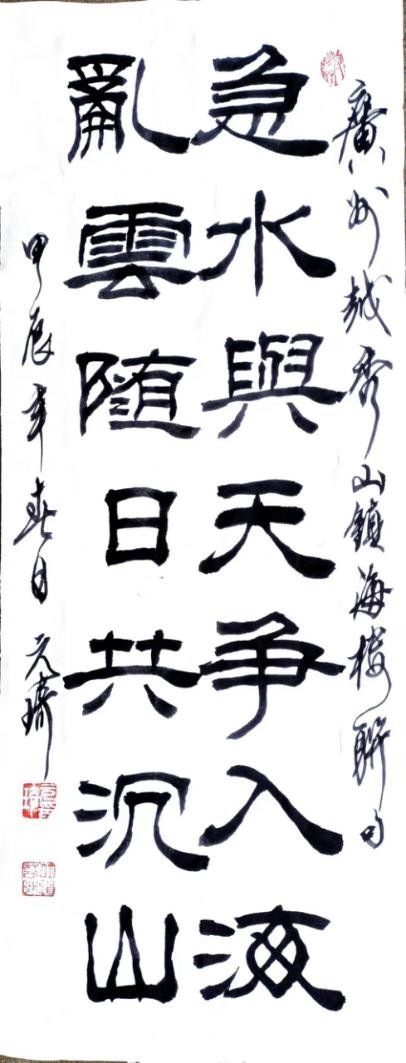 廣州越秀山鎮海樓聯句
急水與天争入海
亂雲随日共沉山
甲辰年春日元璹